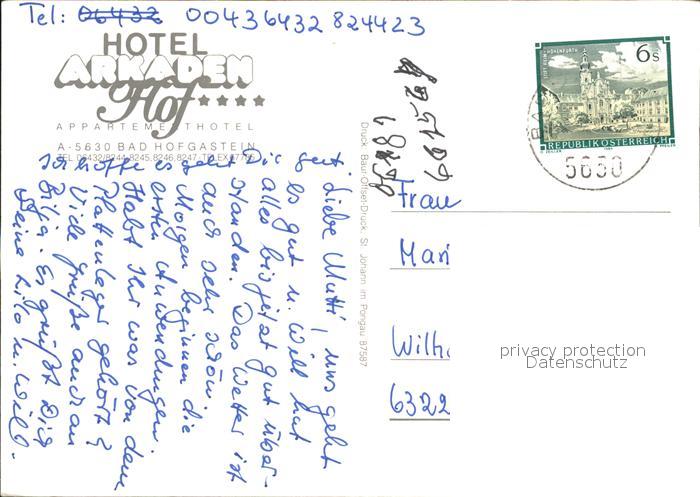 Tel: 06432 00436432 824423
HOTEL
ARKADEN
Hof
APPARTEMENTHOTEL
A-5630 BAD HOFGASTEIN
TEL. 06432/8244, 8245, 8246, 8247, TELEX 677
Liebe Mutti, uns geht
es gut u. Willi hat
alles bis jetzt gut über-
standen. Das Wetter ist
auch sehr schön.
Morgen beginnen die
ersten Anwendungen.
Habt Ihr was von dem
Plattenleger gehört?
Viele Grüße auch an
Es grüßt Dich
Deine Lilo u. Willi.
Ich hoffe es geht Dir gut.
Druck: Baur-Offset-Druck, St. Johann im Pongau 87597
6s
STIFT HOHENFURTH
REPUBLIK ÖSTERREICH
5630
Frau
Mari
Wilh
6322
privacy protection
Datenschutz